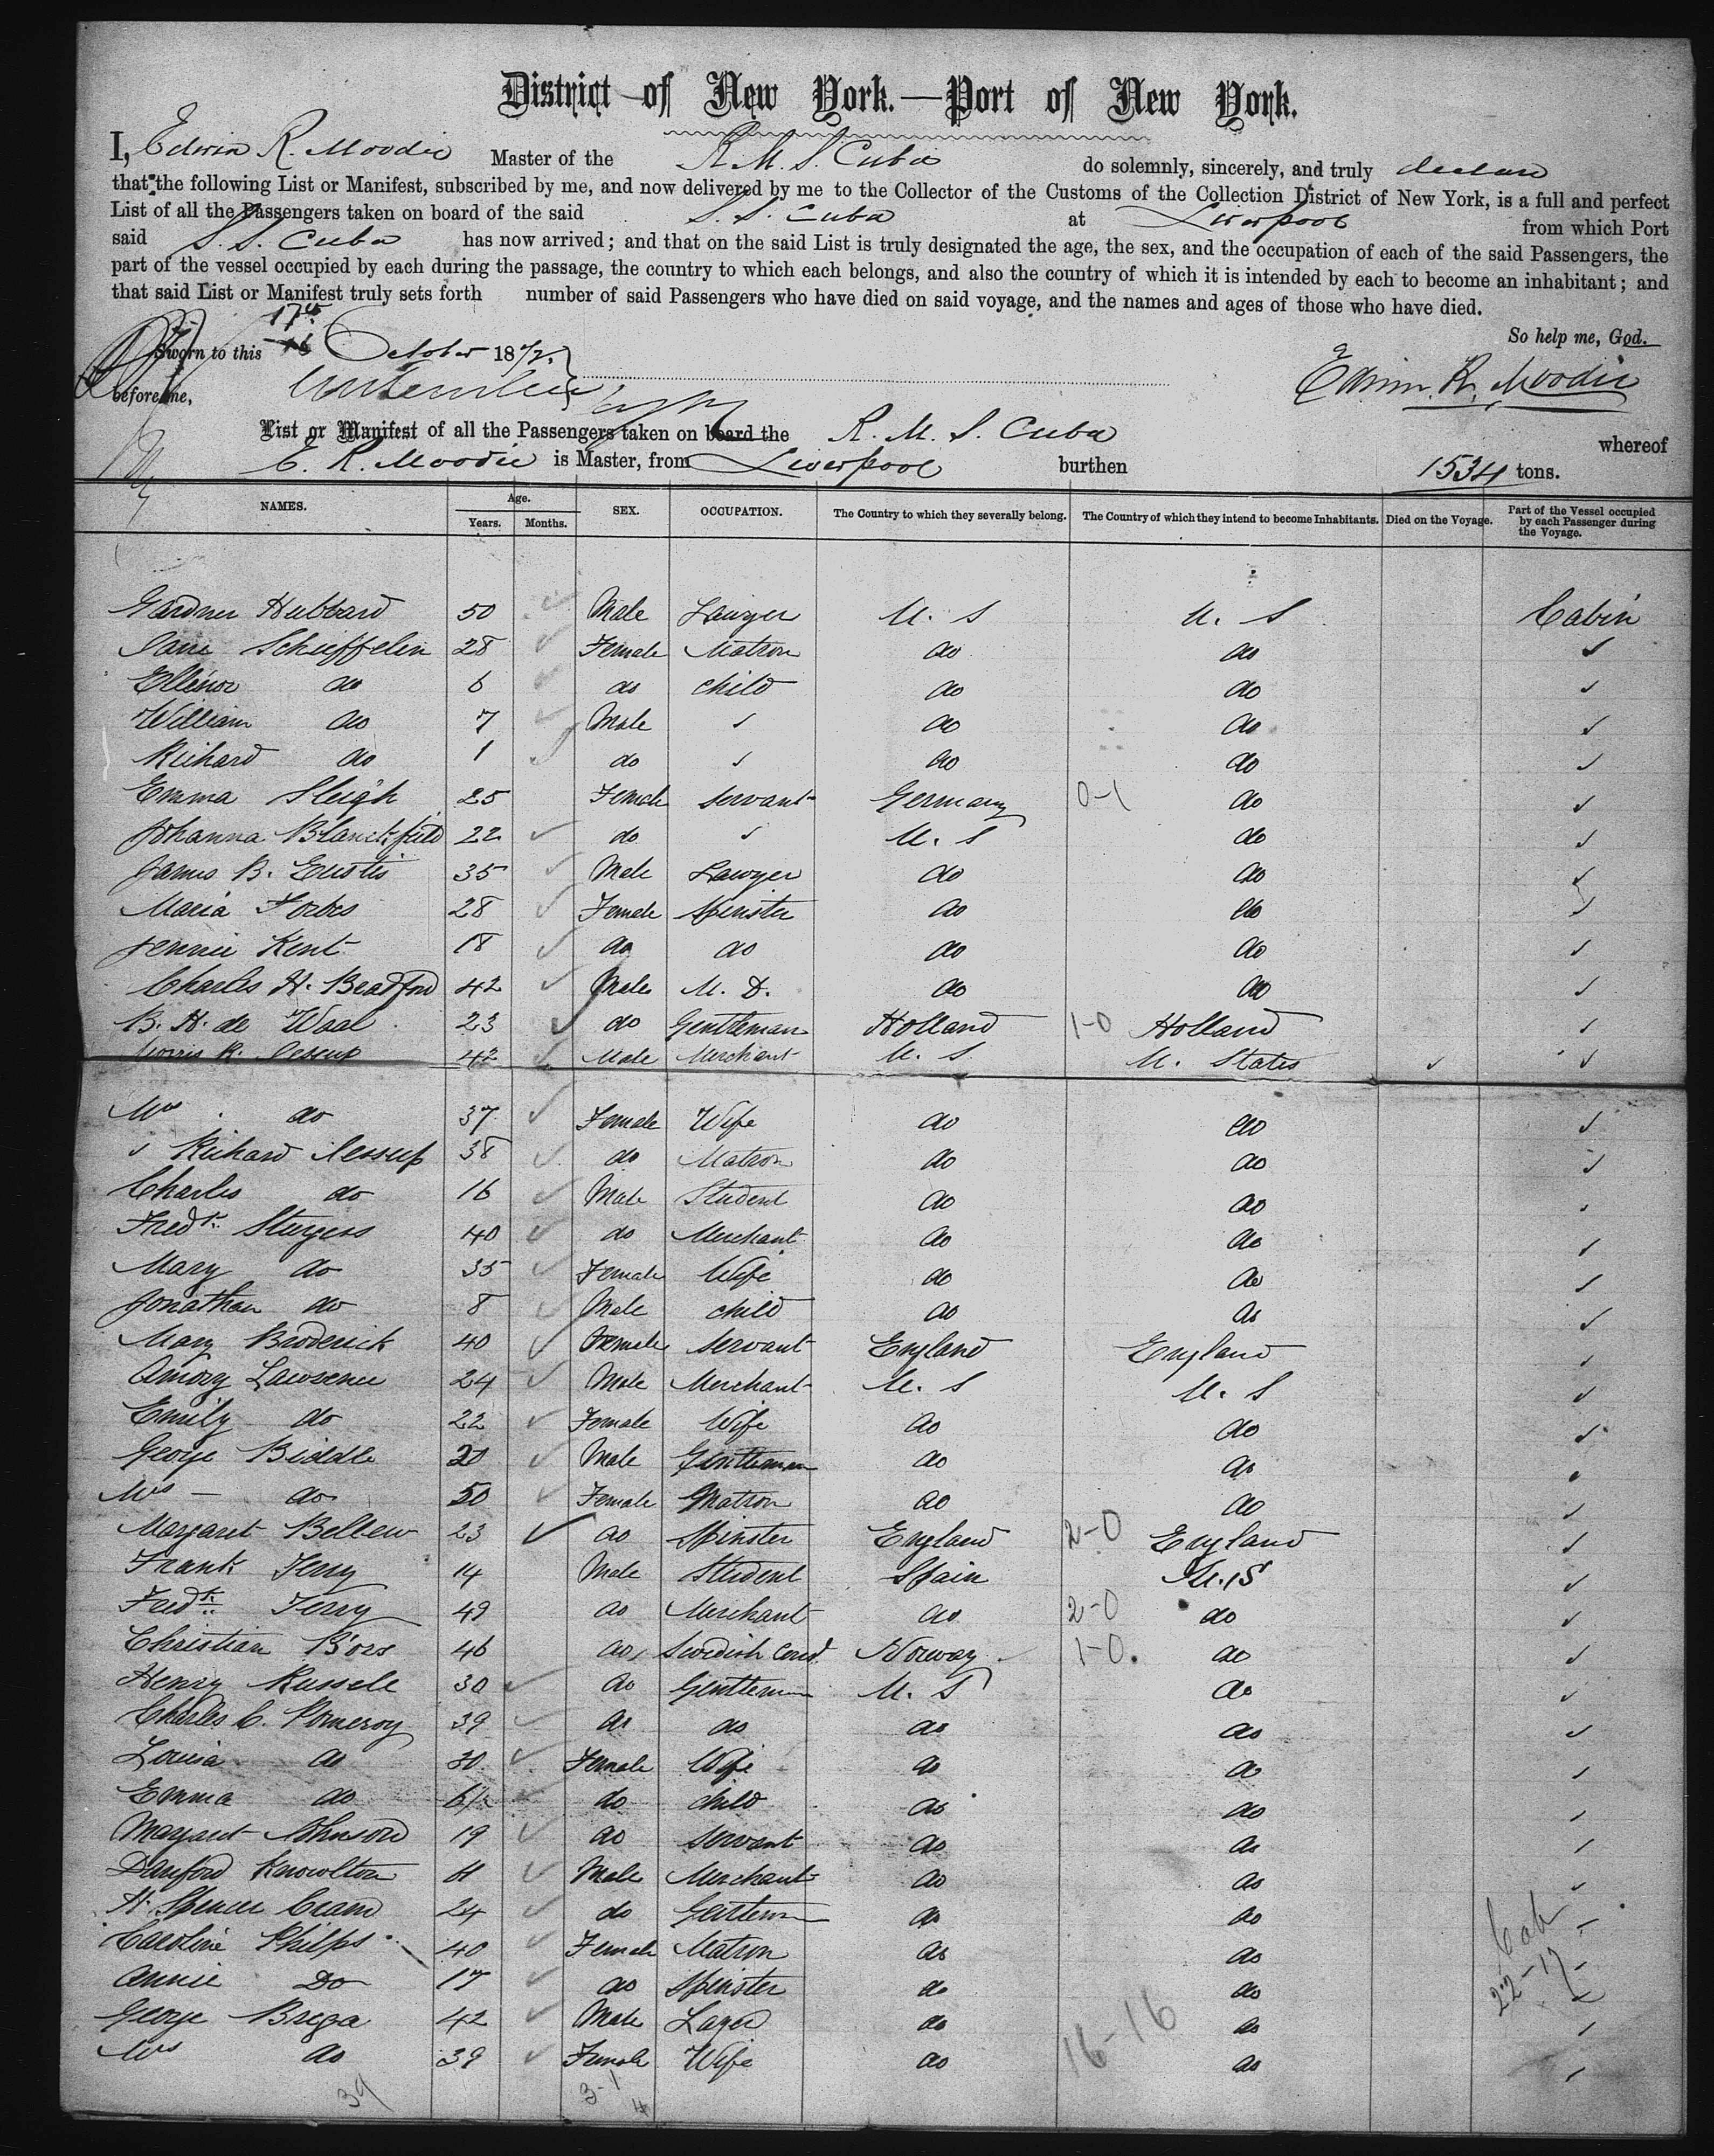 District of New York.—Port of New York.
I, Edwin R. Moodie Master of the R. M. S. Cuba do solemnly, sincerely, and truly declare
that the following List or Manifest, subscribed by me, and now delivered by me to the Collector of the Customs of the Collection District of New York, is a full and perfect
List of all the Passengers taken on board of the said S. S. Cuba at Liverpool from which Port
said S. S. Cuba has now arrived; and that on the said List is truly designated the age, the sex, and the occupation of each of the said Passengers, the
part of the vessel occupied by each during the passage, the country to which each belongs, and also the country of which it is intended by each to become an inhabitant; and
that said List or Manifest truly sets forth number of said Passengers who have died on said voyage, and the names and ages of those who have died.
So help me, God.
Sworn to this 17th October 1872.
before me, Edwin. R. Moodie
List or Manifest of all the Passengers taken on board the R. M. S. Cuba whereof
E. R. Moodie is Master, from Liverpool burthen 1534 tons.
NAMES. Age. Years. Months. SEX. OCCUPATION. The Country to which they severally belong. The Country of which they intend to become Inhabitants. Died on the Voyage. Part of the Vessel occupied by each Passenger during the Voyage.
Gardner Hubbard 50 Male Lawyer U. S U. S Cabin
Schieffelin 28 Female Matron do do
Ellenor do 6 do child do do
William do 7 Male do do
Richard do 1 do do do
Emma Sleigh 25 Female servant Germany 0-1 do
Johanna Blanckfield 22 do U. S do
James B. Eustis 35 Male Lawyer do do
Maria Forbes 28 Female Spinster do do
Jennie Kent 18 do do do do
Charles H. Bradford 42 Male M. D. do do
B. H. de Waal 23 do Gentleman Holland 1-0 Holland
Morris K. Jessup 42 Male Merchant U. S. U. States
Mrs do 37 Female Wife do do
Richard Jessup 38 do Matron do do
Charles do 16 Male Student do do
Fredk. Sturgess 40 do Merchant do do
Mary do 35 Female Wife do do
Jonathan do 8 Male child do do
Mary Broderick 40 Female servant England England
Amory Lawrence 24 Male Merchant U. S U. S
Emily do 22 Female Wife do do
George Biddle 20 Male Gentleman do do
Mrs — do 50 Female Matron do do
Margaret Bellew 23 do Spinster England 2-0 England
Frank Terry 14 Male Student Spain U.S
Fredk Terry 49 do Merchant do 2-0 do
Christian Börs 46 do Swedish Norway 1-0. do
Henry Russell 30 do Gentleman U. S do
Charles C. Pomeroy 39 do do do do
Louisa do 30 Female Wife do do
Emma do 6 do child do do
Margaret Johnson 19 do servant do do
Danford Knowlton Male Merchant do do
H. Spencer Cram 24 do Gentleman do do
Caroline Philps 40 Female Matron do do
Annie Do 17 do Spinster do do
George Brega 42 Male do do
Mrs do 39 Female Wife do do
Cab
22-17
16-16
39
3-1
4